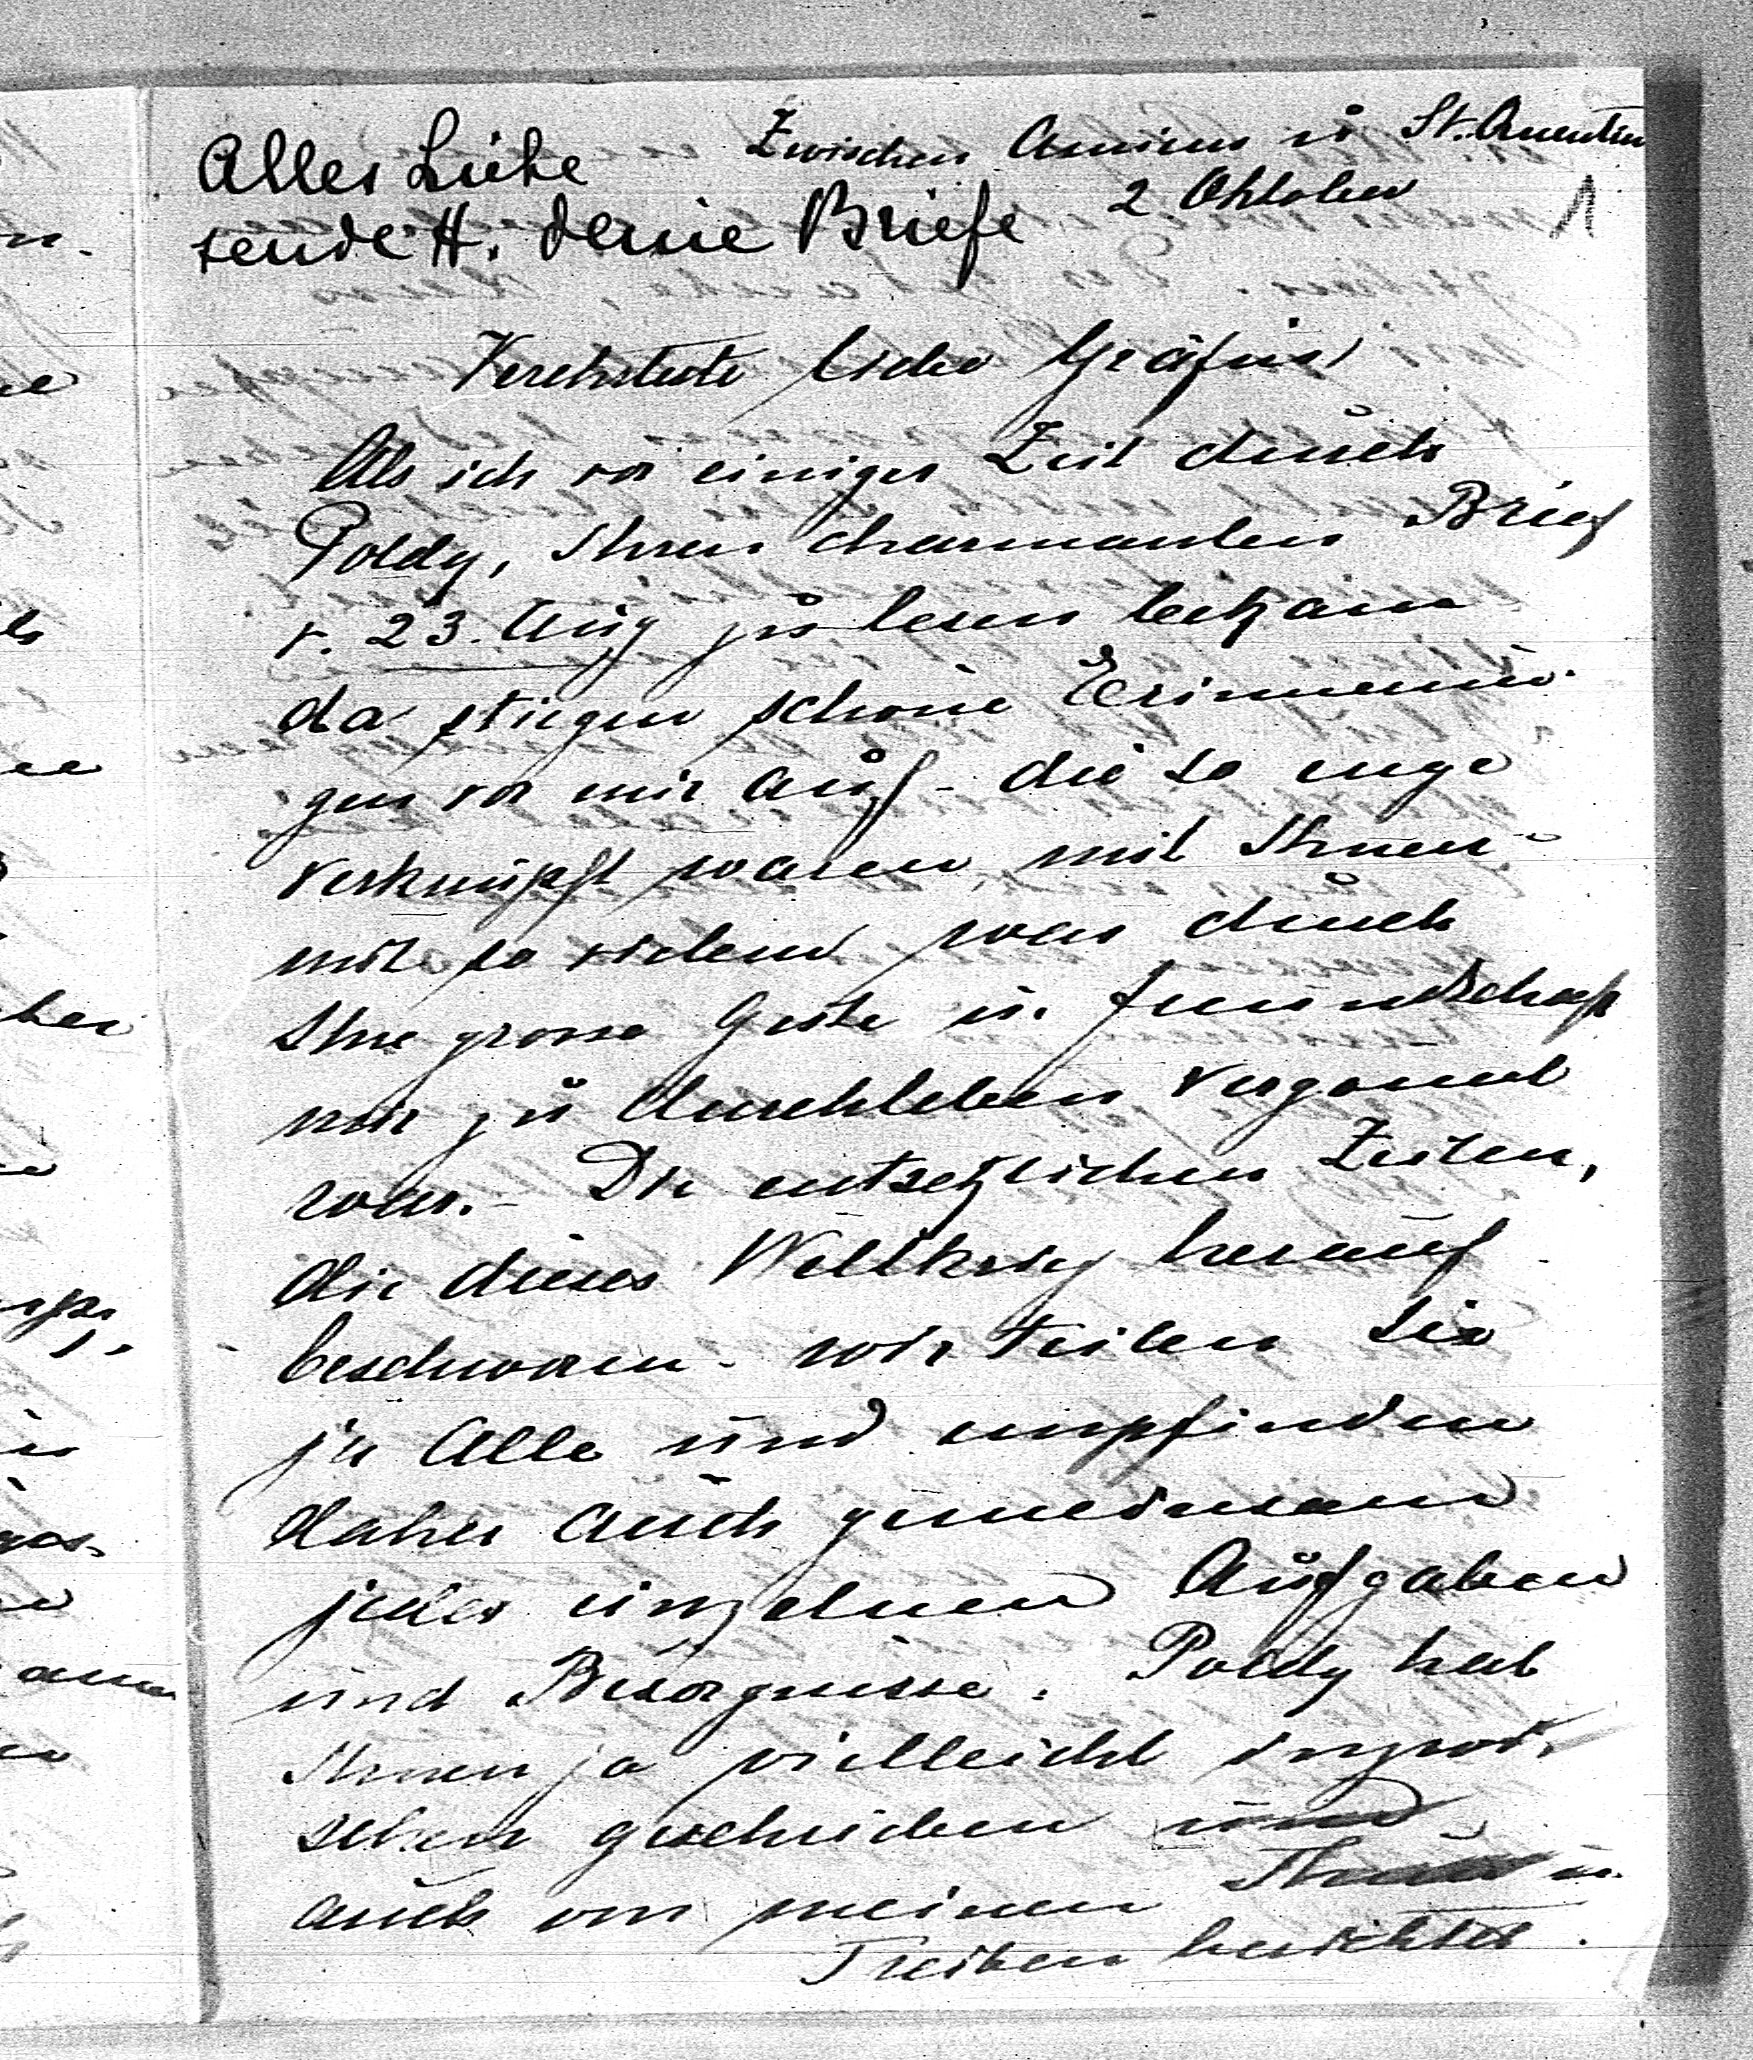 Alles Liebe
sende H. deine Briefe
Zwischen Amiens ŭ St. Quentin
2 Oktober
1
Verehrteste liebe Gräfin
Als ich vor einiger Zeit durch
Poldy, Ihren charmanten Brief
v. 23. Aug zu lesen bekam
da stiegen schöne Erinnerun-
gen vor mir auf - die so enge
verknüpft waren mit Ihnen -
mit so vielem was durch
Ihre grosse Güte u. Freundschaft
mir zu durchleben vergönnt
war. - Die entsetzlichen Zeiten,
die dieser Weltkrieg herauf
beschworen - wir teilen sie
ja Alle und empfinden
daher auch gemeinsam
jedes einzelnen Aufgaben
und Besorgnisse. Poldy hat
Ihnen ja vielleicht inzwi-
schen geschrieben und
auch von meinem u.
Treiben berichtet.